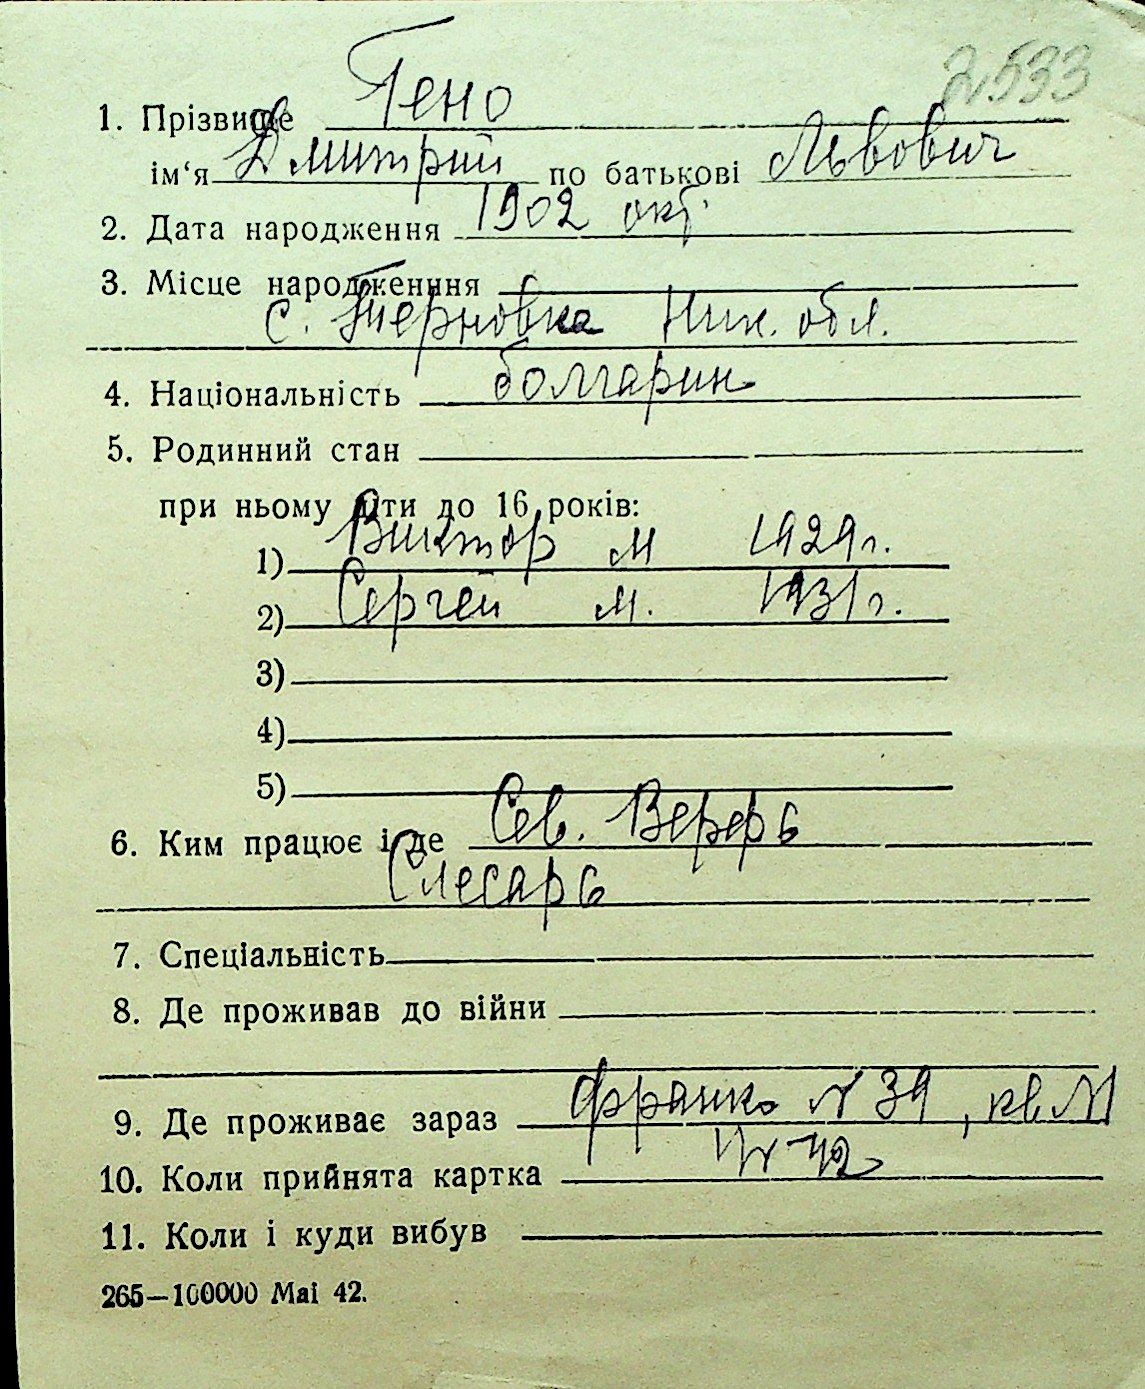 2533
1. Прізвище Гено
ім'я Дмитрий по батькові Львович
2. Дата народження 1902 окт.
3. Місце народженння
с. Терновка Ник. обл.
4. Національність болгарин
5. Родинний стан
при ньому діти до 16 років:
1) Виктор м 1929г.
2) Сергей м. 1931г.
3)
4)
5)
6. Ким працює і де Сев. Верфь
Слесарь
7. Спеціальність
8. Де проживав до війни
9. Де проживає зараз Франко № 39, кв.
10. Коли прийнята картка 42
11. Коли і куди вибув
265—100000 Mai 42.